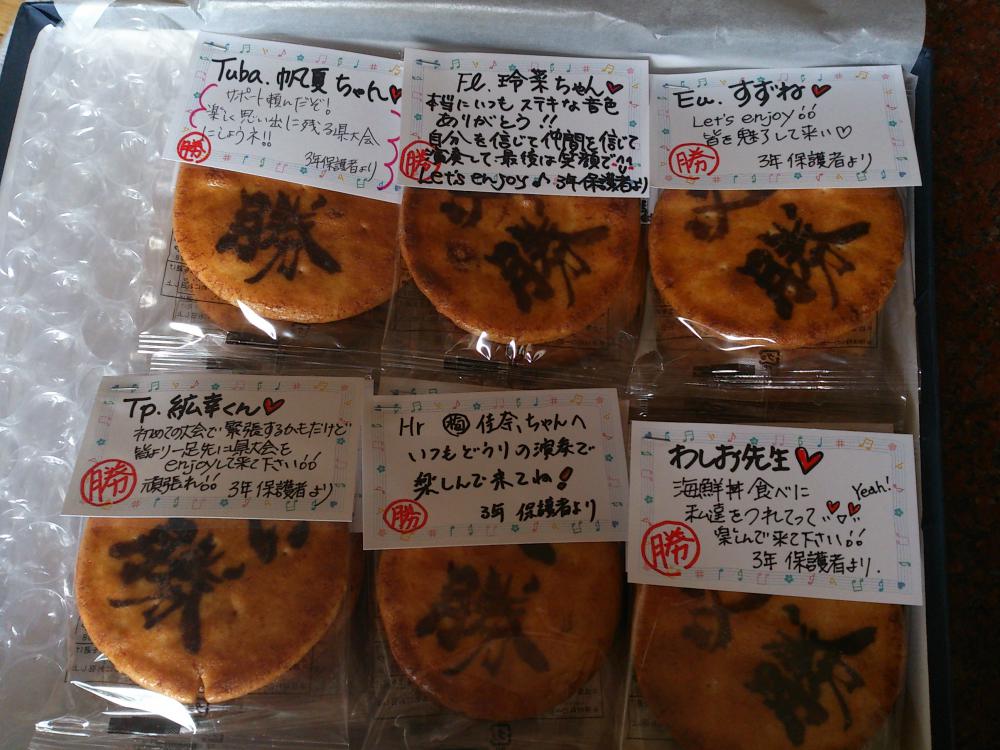 Tuba. 帆夏ちゃん♥
サポート頼んだぞ!
楽しく思い出に残る県大会
にしようネ!!
勝
3年保護者より
Fl. 玲菜ちゃん♥
本当にいつもステキな音色
ありがとう!!
自分を信じて仲間を信じて
演奏して最後は笑顔で!!
Let's enjoy♪ 3年保護者より
勝
Eu. すずね♥
Let's enjoy!!
皆を魅了して来い♡
勝
3年保護者より
勝
勝
勝
Tp. 紘幸くん♥
初めての大会で緊張するかもだけど
皆より一足先に県大会を
enjoyして来て下さい!!
頑張れ!! 3年保護者より
勝
Hr 佳奈ちゃんへ
いつもどうりの演奏で
楽しんで来てね!
勝
3年 保護者より
わしお先生♥
海鮮丼食べに Yeah!
私達をつれてって
楽しんで来て下さい!!
勝
3年 保護者より.
勝
勝
勝